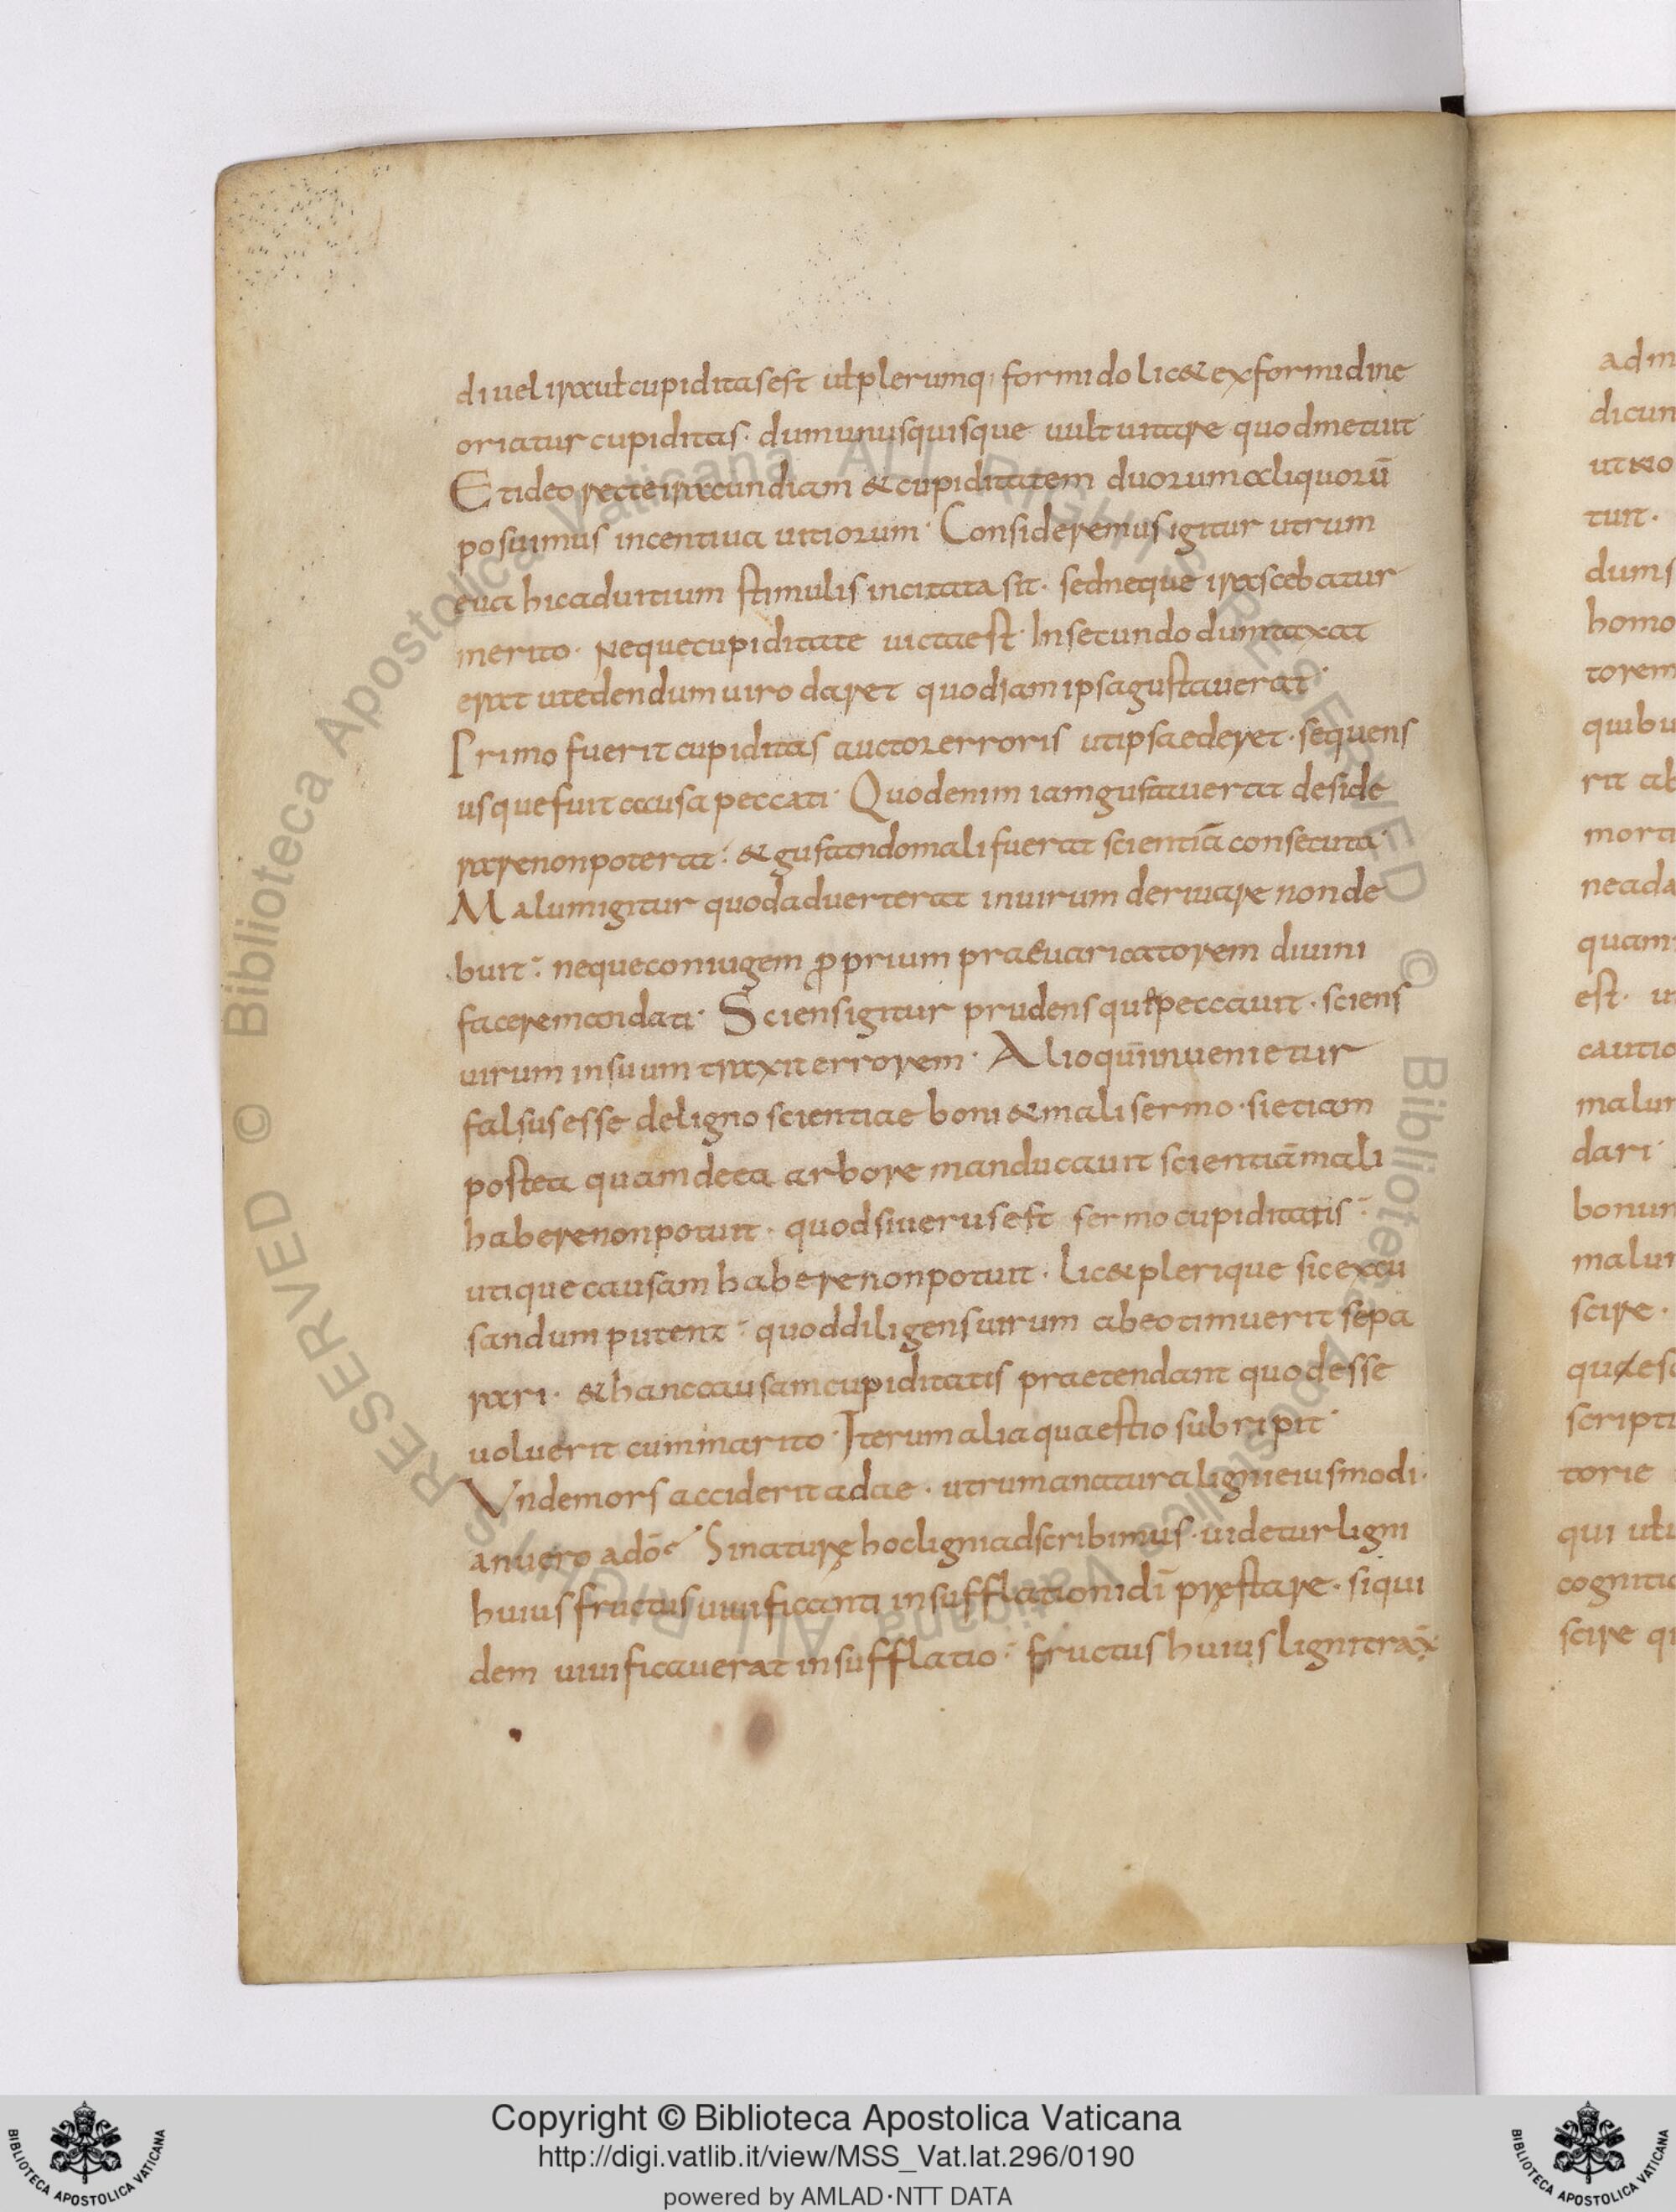 di uel ira ut cupiditas est ut plerumq; formido lic&ex formidine
oriatur cupiditas· dum unusquisque uult uitare quod metuit
Et ideo recte iracundiam & cupiditatem duorum aliquorū
posuimus incentiua uitiorum· Consideremus igitur utrum
eua hic ad uitium stimulis incitata sit· sed neque irascebatur
merito· neque cupiditate uicta est· In secundo dumtaxat
erat ut edendum uiro daret quod iam ipsa gustauerat·
Primo fuerit cupiditas auctor erroris ut ipsa ederet· sequens
usque fuit causa peccati· Quod enim iam gustauerat deside
rare non poterat· & gustando mali fuerat scientiā consecuta·
Malum igitur quod aduerterat in uirum deriuare non de
buit· neque coniugem ꝓprium praeuaricatorem diuini
facere mandati· Sciens igitur prudens qui peccauit· sciens
uirum in suum traxit errorem· Alioquī inuenietur
falsus esse de ligno scientiae boni & mali sermo· si etiam
postea quam de ea arbore manducauit scientiā mali
habere non potuit· quod si uerus est sermo cupiditatis·
utique causam habere non potuit· lic& plerique sic excu
sandum putent· quod diligens uirum ab eo timuerit sepa
rari· & hanc causam cupiditatis praetendant quod esse
uoluerit cum marito· Iterum alia quaestio subripit·
Vnde mors acciderit adae· utrum a natura ligni eiusmodi·
an uero a dō Si naturę hoc ligni adscribimus· uidetur ligni
huius fructus uiuificanti insufflationi dī pręstare· siqui
dem uiuificauerat insufflatio· fructus huius ligni trax
ad m
dicun
tuit·
dum s
homo
torem
quibu
rit ab
morti
nec ada
quam
est· u
cautio
malum
dari·
bonum
malum
scire·
quę es
scripti
torie
qui ut
cognitio
scire qu
© Biblioteca Apostolica Vaticana ALL RIGHTS RESERVED © Biblioteca Apostolica Vaticana ALL RIGHTS RESERVED
Copyright © Biblioteca Apostolica Vaticana
http://digi.vatlib.it/view/MSS_Vat.lat.296/0190
powered by AMLAD·NTT DATA
BIBLIOTECA APOSTOLICA VATICANA
BIBLIOTECA APOSTOLICA VATICANA